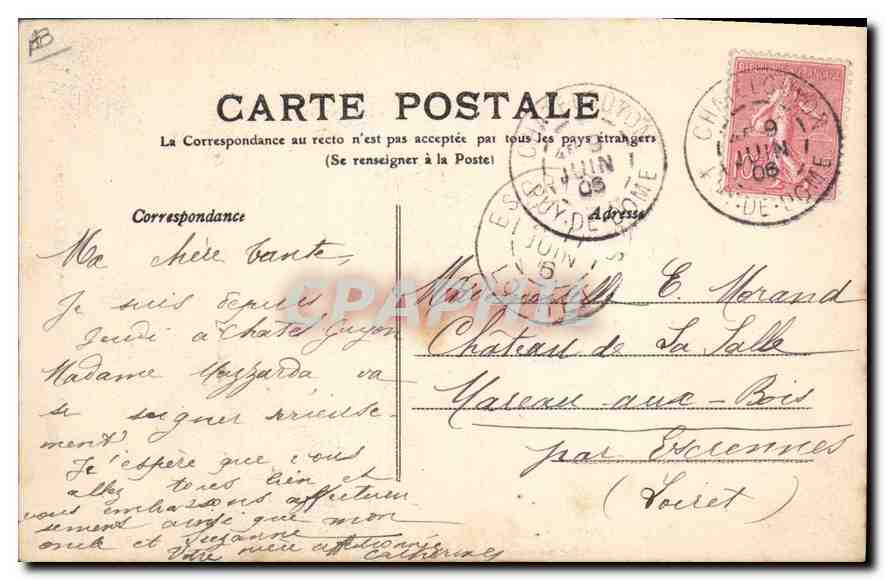 AB
CARTE POSTALE
La Correspondance au recto n'est pas acceptée par tous les pays étrangers
(Se renseigner à la Poste)
Correspondance
Adresse
Ma chère tante,
Je suis depuis
Jeudi à Chatel Guyon
Madame Mazzarda va
se soigner sérieuse-
ment
J'espère que vous
allez tous bien et
vous embrassons affectueu
sement ainsi que mon
oncle et Suzanne
Votre nièce affectionnée
Catherine
Mademoiselle E. Morand
Château de La Salle
Mareau-aux-Bois
par Escrennes
(Loiret)
9
JUIN
06
PUY-DE-DOME
9
JUIN
06
PUY-DE-DOME
JUIN
CPAPHIL